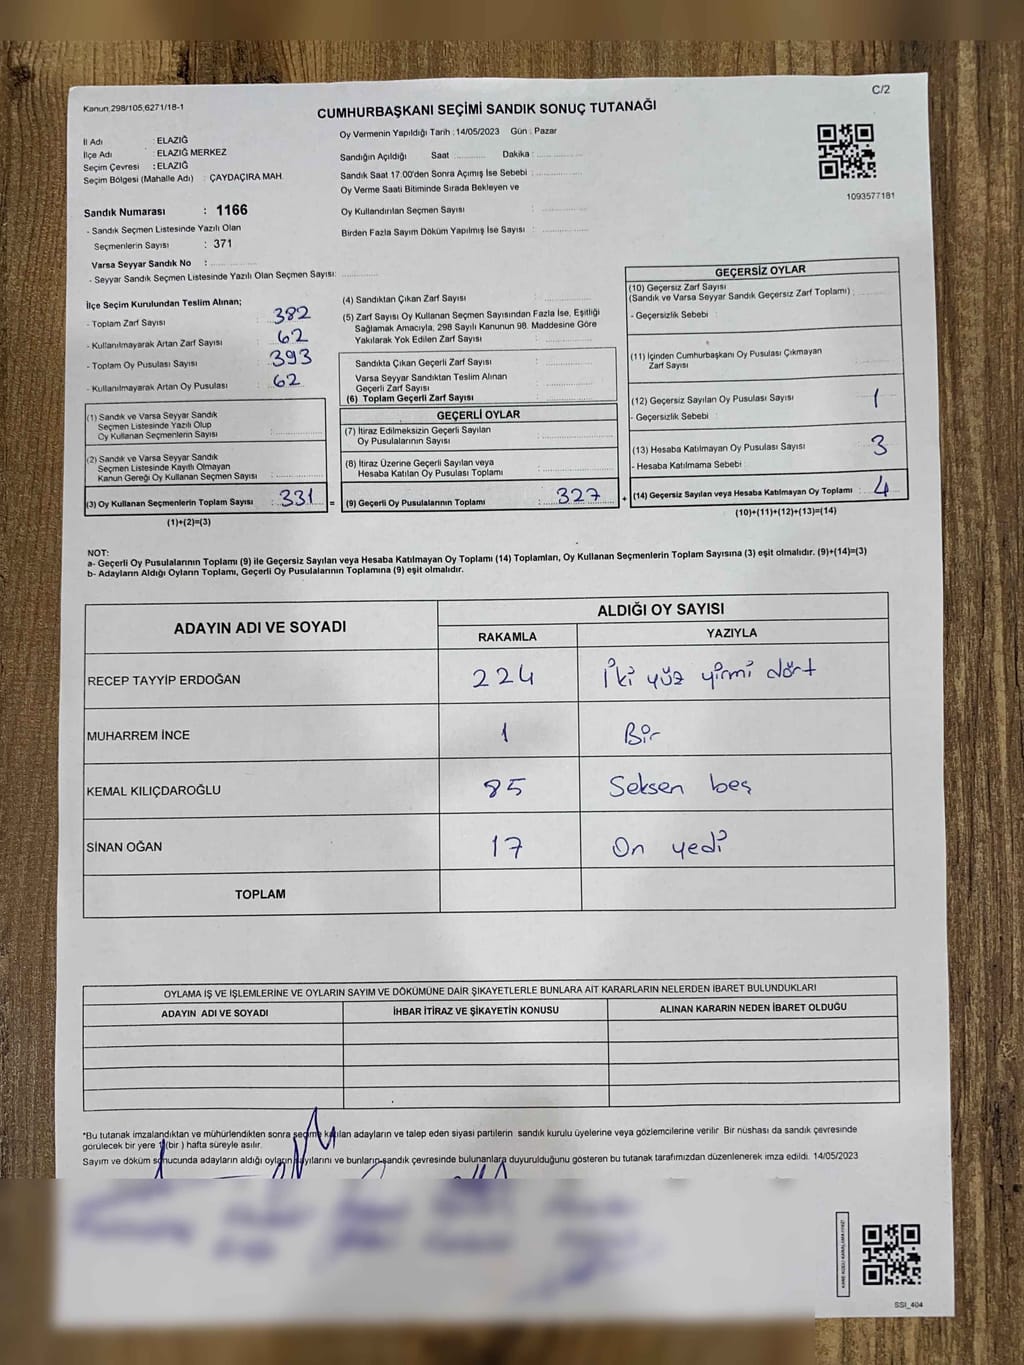 Kanun 298/105,6271/18-1
C/2
CUMHURBAŞKANI SEÇİMİ SANDIK SONUÇ TUTANAĞI
İl Adı : ELAZIĞ
İlçe Adı : ELAZIĞ MERKEZ
Seçim Çevresi : ELAZIĞ
Seçim Bölgesi (Mahalle Adı) : ÇAYDAÇIRA MAH.
Sandık Numarası : 1166
- Sandık Seçmen Listesinde Yazılı Olan
Seçmenlerin Sayısı : 371
Varsa Seyyar Sandık No :
- Seyyar Sandık Seçmen Listesinde Yazılı Olan Seçmen Sayısı:
Oy Vermenin Yapıldığı Tarih : 14/05/2023 Gün : Pazar
Sandığın Açıldığı Saat Dakika :
Sandık Saat 17.00'den Sonra Açımış İse Sebebi :
Oy Verme Saati Bitiminde Sırada Bekleyen ve
Oy Kullandırılan Seçmen Sayısı :
Birden Fazla Sayım Döküm Yapılmış İse Sayısı :
1093577181
İlçe Seçim Kurulundan Teslim Alınan;
- Toplam Zarf Sayısı : 382
- Kullanılmayarak Artan Zarf Sayısı : 62
- Toplam Oy Pusulası Sayısı : 393
- Kullanılmayarak Artan Oy Pusulası : 62
(1) Sandık ve Varsa Seyyar Sandık
Seçmen Listesinde Yazılı Olup
Oy Kullanan Seçmenlerin Sayısı :
(2) Sandık ve Varsa Seyyar Sandık
Seçmen Listesinde Kayıtlı Olmayan
Kanun Gereği Oy Kullanan Seçmen Sayısı :
(3) Oy Kullanan Seçmenlerin Toplam Sayısı : 331 =
(1)+(2)=(3)
(4) Sandıktan Çıkan Zarf Sayısı :
(5) Zarf Sayısı Oy Kullanan Seçmen Sayısından Fazla İse, Eşitliği
Sağlamak Amacıyla, 298 Sayılı Kanunun 98. Maddesine Göre
Yakılarak Yok Edilen Zarf Sayısı :
Sandıkta Çıkan Geçerli Zarf Sayısı :
Varsa Seyyar Sandıktan Teslim Alınan
Geçerli Zarf Sayısı :
(6) Toplam Geçerli Zarf Sayısı :
GEÇERLİ OYLAR
(7) İtiraz Edilmeksizin Geçerli Sayılan
Oy Pusulalarının Sayısı :
(8) İtiraz Üzerine Geçerli Sayılan veya
Hesaba Katılan Oy Pusulası Toplamı :
(9) Geçerli Oy Pusulalarının Toplamı : 327 +
GEÇERSİZ OYLAR
(10) Geçersiz Zarf Sayısı
(Sandık ve Varsa Seyyar Sandık Geçersiz Zarf Toplamı) :
- Geçersizlik Sebebi :
(11) İçinden Cumhurbaşkanı Oy Pusulası Çıkmayan
Zarf Sayısı :
(12) Geçersiz Sayılan Oy Pusulası Sayısı : 1
- Geçersizlik Sebebi :
(13) Hesaba Katılmayan Oy Pusulası Sayısı : 3
- Hesaba Katılmama Sebebi :
(14) Geçersiz Sayılan veya Hesaba Katılmayan Oy Toplamı : 4
(10)+(11)+(12)+(13)=(14)
NOT:
a- Geçerli Oy Pusulalarının Toplamı (9) ile Geçersiz Sayılan veya Hesaba Katılmayan Oy Toplamı (14) Toplamları, Oy Kullanan Seçmenlerin Toplam Sayısına (3) eşit olmalıdır. (9)+(14)=(3)
b- Adayların Aldığı Oyların Toplamı, Geçerli Oy Pusulalarının Toplamına (9) eşit olmalıdır.
ADAYIN ADI VE SOYADI ALDIĞI OY SAYISI
RAKAMLA YAZIYLA
RECEP TAYYİP ERDOĞAN 224 İki yüz yirmi dört
MUHARREM İNCE 1 Bir
KEMAL KILIÇDAROĞLU 85 Seksen beş
SİNAN OĞAN 17 On yedi
TOPLAM
OYLAMA İŞ VE İŞLEMLERİNE VE OYLARIN SAYIM VE DÖKÜMÜNE DAİR ŞİKAYETLERLE BUNLARA AİT KARARLARIN NELERDEN İBARET BULUNDUKLARI
ADAYIN ADI VE SOYADI İHBAR İTİRAZ VE ŞİKAYETİN KONUSU ALINAN KARARIN NEDEN İBARET OLDUĞU
*Bu tutanak imzalandıktan ve mühürlendikten sonra seçime katılan adayların ve talep eden siyasi partilerin sandık kurulu üyelerine veya gözlemcilerine verilir. Bir nüshası da sandık çevresinde
görülecek bir yere 1 (bir ) hafta süreyle asılır.
Sayım ve döküm sonucunda adayların aldığı oyların sayılarını ve bunların sandık çevresinde bulunanlara duyurulduğunu gösteren bu tutanak tarafımızdan düzenlenerek imza edildi. 14/05/2023
SSI_404